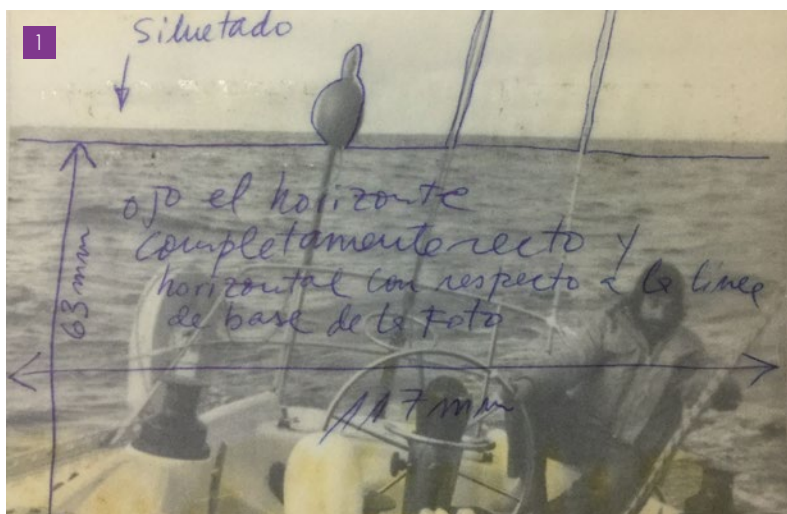 1
Siluetado
ojo el horizonte
completamente recto y
horizontal con respecto a la línea
de base de la Foto
63 mm
117 mm